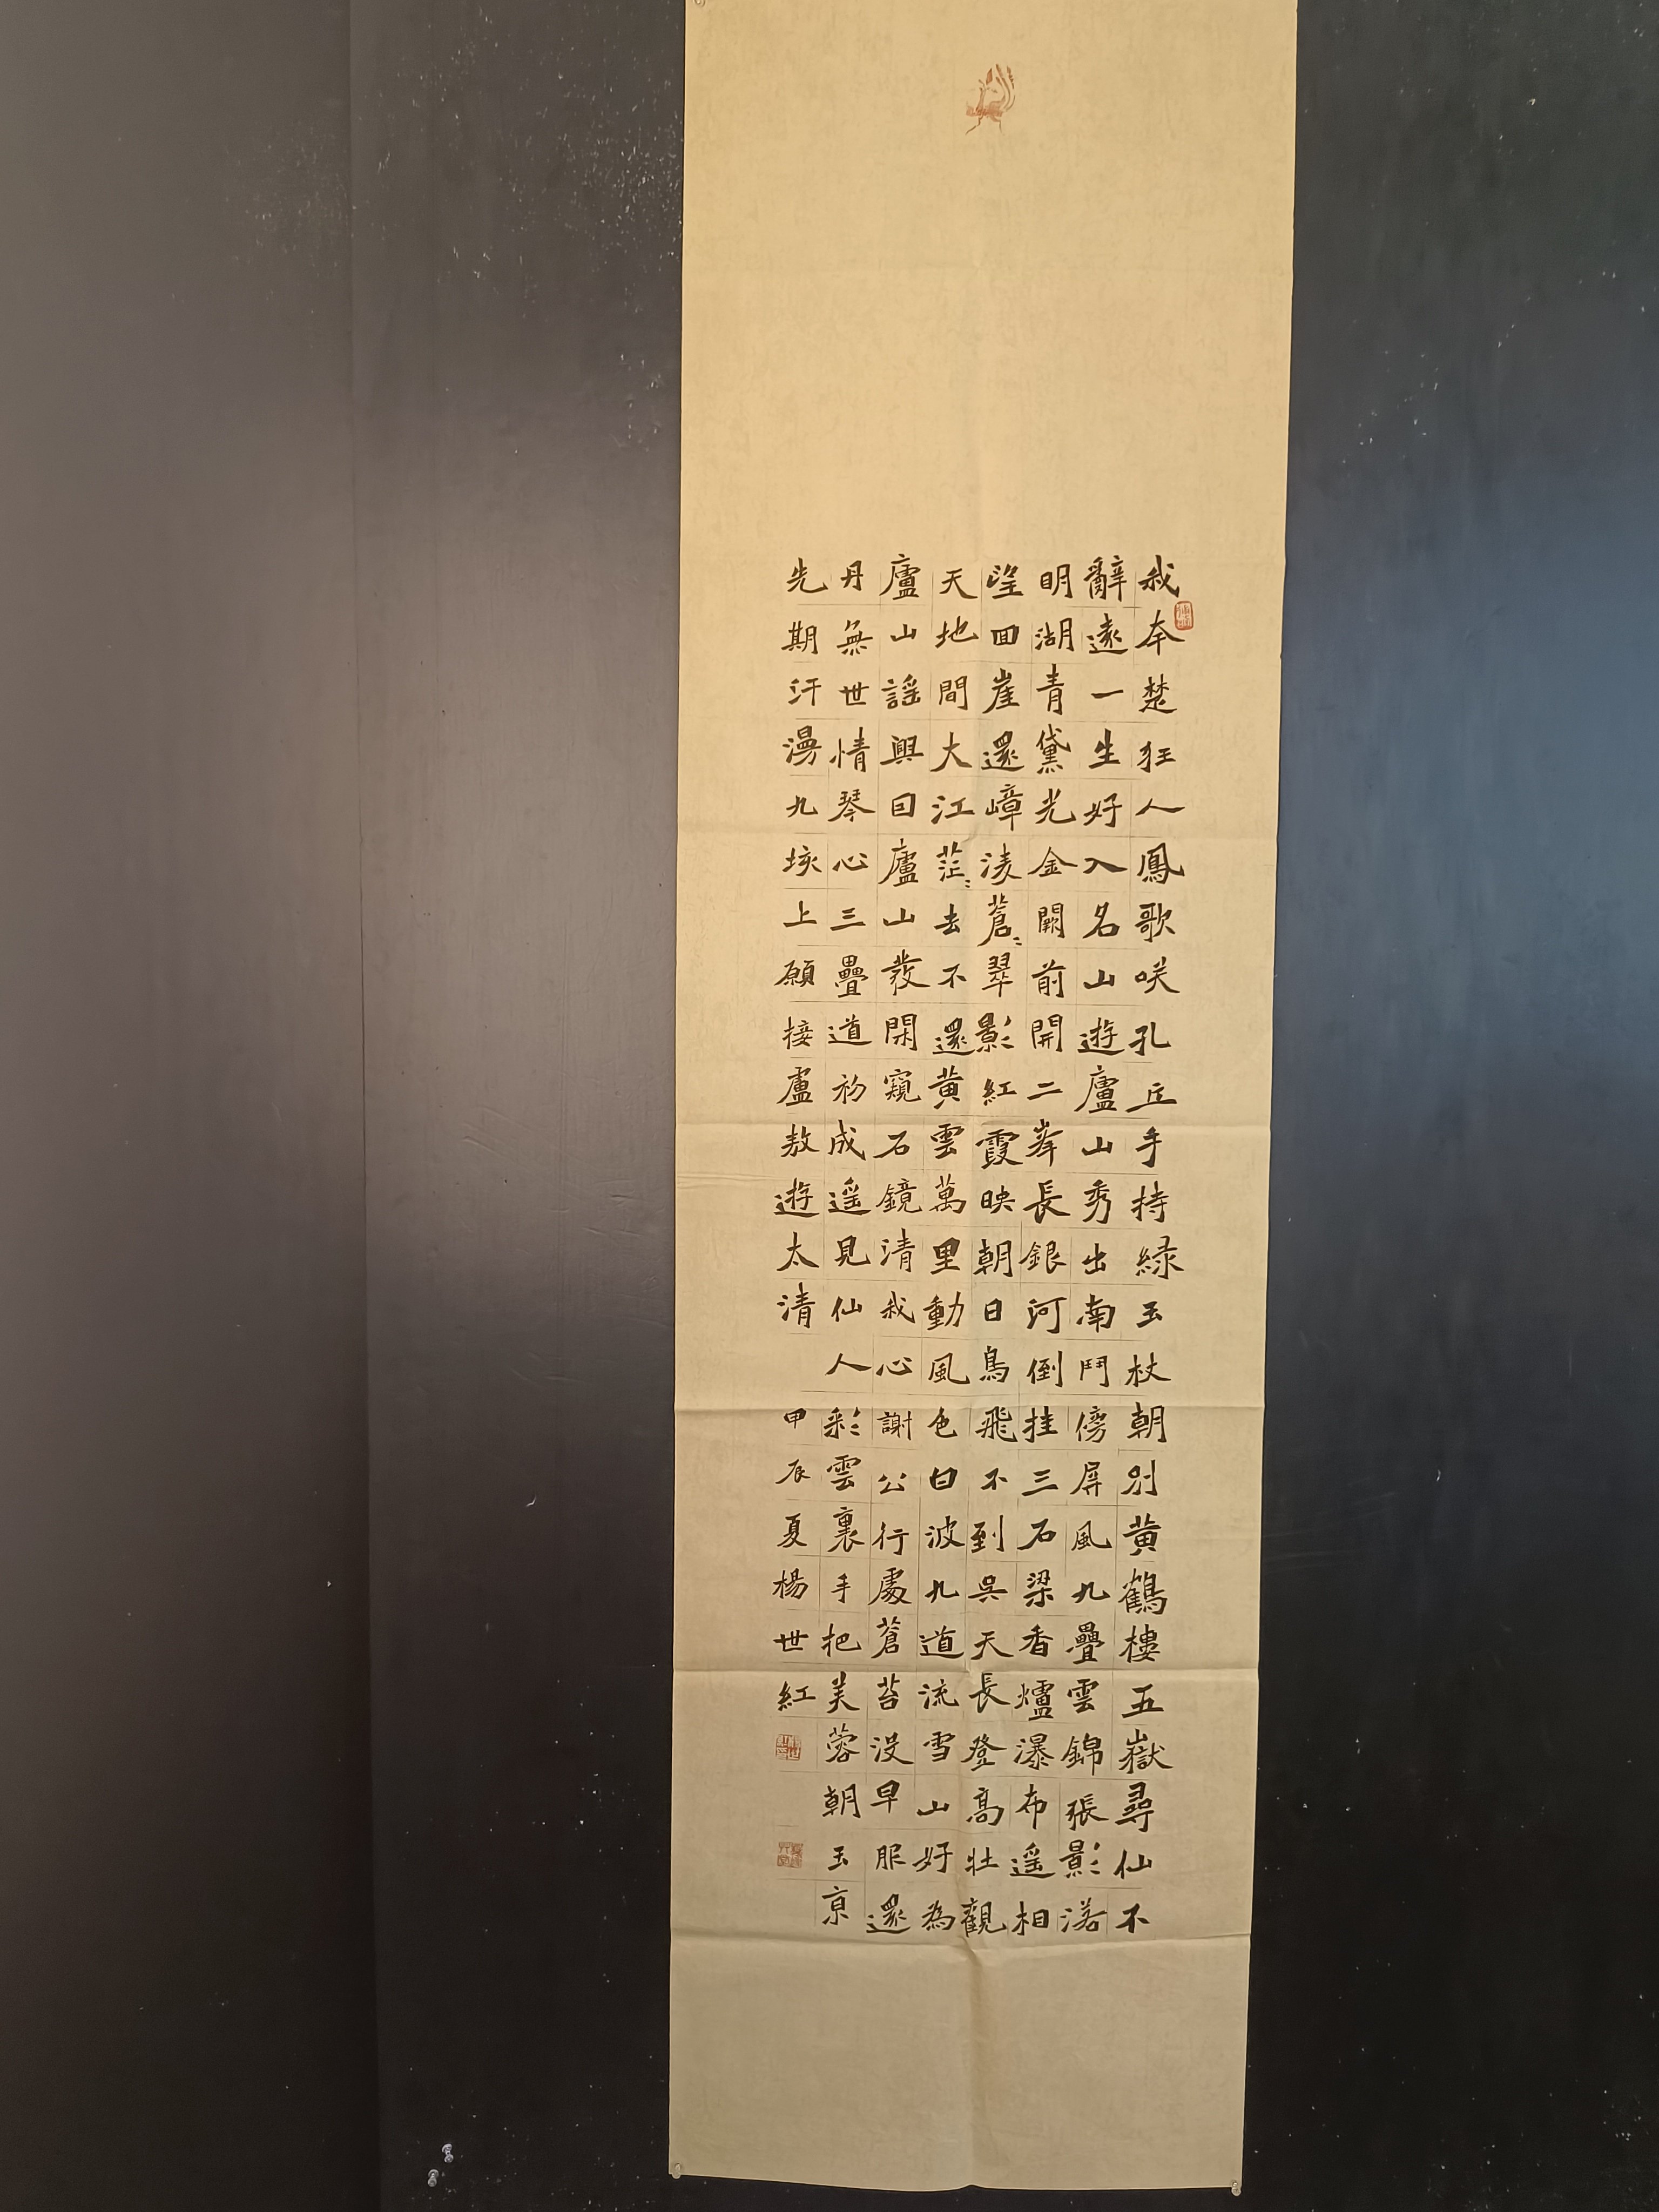 我本楚狂人鳳歌咲孔丘手持緑玉杖朝別黄鶴樓五嶽尋仙不
辭遠一生好入名山遊廬山秀出南鬥傍屏風九疊雲錦張影落
明湖青黛光金闕前開二峯長銀河倒挂三石梁香爐瀑布遥相
望回崖還嶂淩蒼〻翠影紅霞映朝日鳥飛不到吳天長登高壯觀
天地間大江茫〻去不還黄雲萬里動風色白波九道流雪山好為
廬山謡興因廬山發閑窺石鏡清我心謝公行處蒼苔没早服還
丹無世情琴心三疊道初成遥見仙人彩雲裏手把芙蓉朝玉京
先期汗漫九垓上願接盧敖遊太清
甲辰夏楊世紅